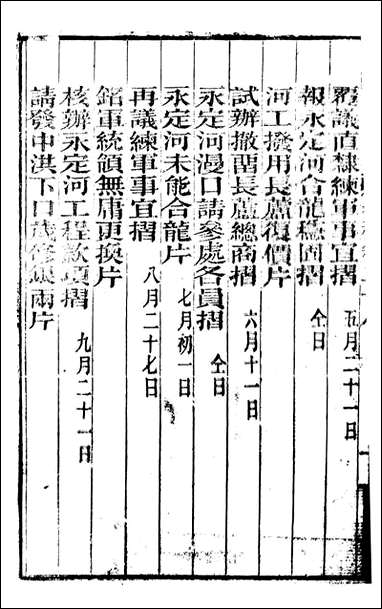 覆議直隸練軍事宜摺 五月二十一日
報永定河合龍穩固摺 仝日
河工撥用長蘆復價片
試辦撤酉長蘆總商摺 六月十一日
永定河漫口請參處各員摺 仝日
永定河未能合龍片 七月初一日
再議練軍事宜摺 八月二十七日
銘軍統領無庸更換片
核辦永定河工程款項摺 九月二十一日
請發中洪下口歲修銀兩片